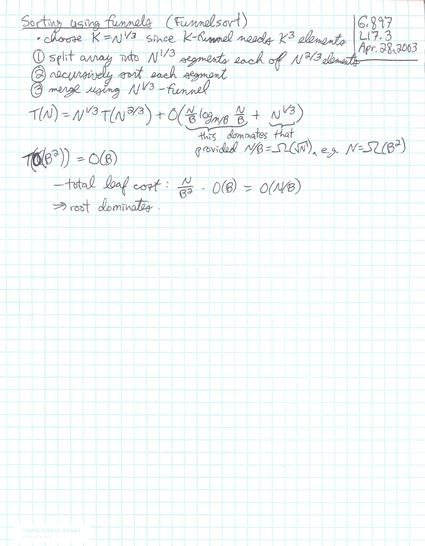 Sorting using funnels (Funnelsort)
6.897
L17.3
Apr. 28, 2003
• choose K = N^{1/3} since K-funnel needs K^3 elements
① split array into N^{1/3} segments each of N^{2/3} elements
② recursively sort each segment
③ merge using N^{1/3}-funnel
T(N) = N^{1/3} T(N^{2/3}) + O(N/B log_{M/B} N/B + N^{1/3})
this dominates that
provided N/B = Ω(√N), e.g. N = Ω(B²)
T(O(B²)) = O(B)
– total leaf cost: N/B² · O(B) = O(N/B)
⇒ root dominates.